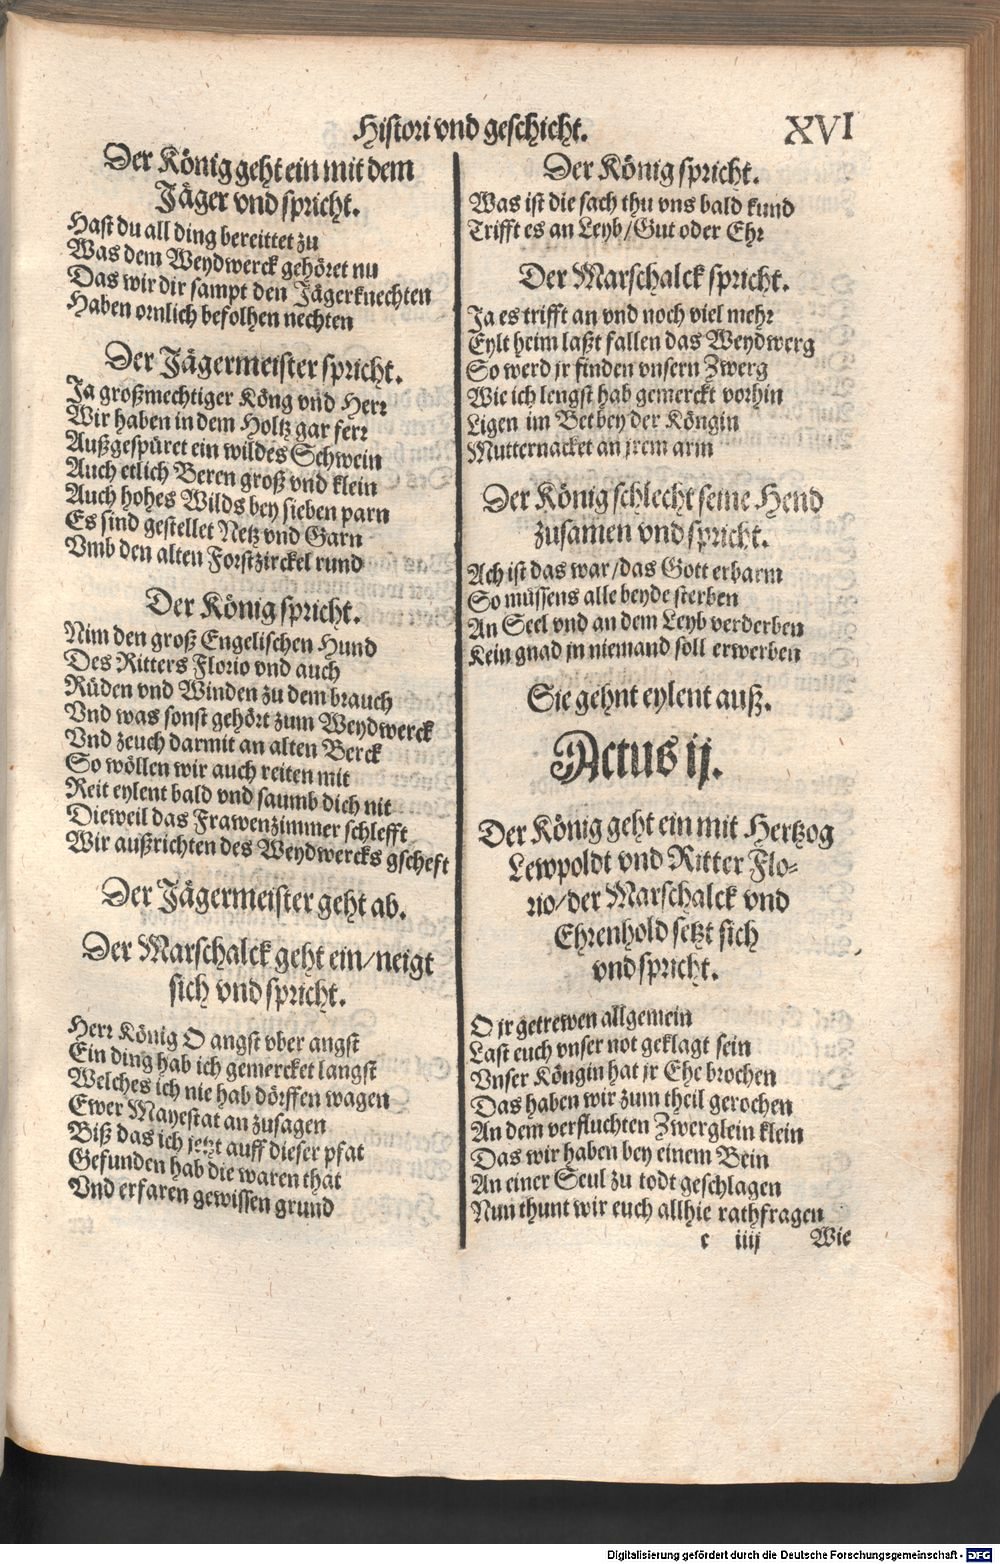 Histori vnd geschicht.
XVI
Der König geht ein mit dem
Jäger vnd spricht.
Hast du all ding bereittet zu
Was dem Weydwerck gehöret nu
Das wir dir sampt den Jägerknechten
Haben ornlich befolhen nechten
Der Jägermeister spricht.
Ja großmechtiger Köng vnd Herr
Wir haben in dem Holtz gar ferr
Außgespüret ein wildes Schwein
Auch etlich Beren groß vnd klein
Auch hohes Wilds bey sieben parn
Es sind gestellet Netz vnd Garn
Vmb den alten Forstzirckel rund
Der König spricht.
Nim den groß Engelischen Hund
Des Ritters Florio vnd auch
Rüden vnd Winden zu dem brauch
Vnd was sonst gehört zum Weydwerck
Vnd zeuch darmit an alten Berck
So wöllen wir auch reiten mit
Reit eylent bald vnd saumb dich nit
Dieweil das Frawenzimmer schlefft
Wir außrichten des Weydwercks gscheft
Der Jägermeister geht ab.
Der Marschalck geht ein/neigt
sich vnd spricht.
Herr König O angst vber angst
Ein ding hab ich gemercket langst
Welches ich nie hab dörffen wagen
Ewer Mayestat an zusagen
Biß das ich jetzt auff dieser pfat
Gefunden hab die waren that
Vnd erfaren gewissen grund
Der König spricht.
Was ist die sach thu vns bald kund
Trifft es an Leyb/Gut oder Ehr
Der Marschalck spricht.
Ja es trifft an vnd noch viel mehr
Eylt heim laßt fallen das Weydwerg
So werd jr finden vnsern Zwerg
Wie ich lengst hab gemerckt vorhin
Ligen im Bet bey der Köngin
Mutternacket an jrem arm
Der König schlecht seine Hend
zusamen vnd spricht.
Ach ist das war/das Gott erbarm
So müssens alle beyde sterben
An Seel vnd an dem Leyb verderben
Kein gnad jn niemand soll erwerben
Sie gehnt eylent auß.
Actus ij.
Der König geht ein mit Hertzog
Lewpoldt vnd Ritter Flo-
rio/der Marschalck vnd
Ehrenhold setzt sich
vnd spricht.
O jr getrewen allgemein
Last euch vnser not geklagt sein
Vnser Köngin hat jr Ehe brochen
Das haben wir zum theil gerochen
An dem verfluchten Zwerglein klein
Das wir haben bey einem Bein
An einer Seul zu todt geschlagen
Nun thunt wir euch allhie rathfragen
c iiij Wie
Digitalisierung gefördert durch die Deutsche Forschungsgemeinschaft - DFG